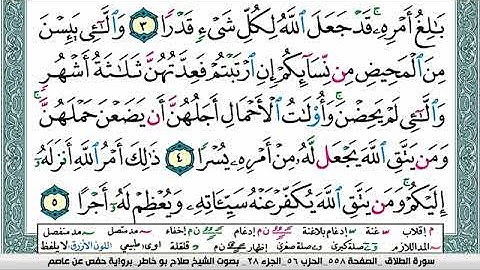 بَـٰلِغُ أَمْرِهِۦۚ قَدْ جَعَلَ ٱللَّهُ لِكُلِّ شَىْءٍ قَدْرًا ٣ وَٱلَّـٰٓـِٔى يَئِسْنَ
مِنَ ٱلْمَحِيضِ مِن نِّسَآئِكُمْ إِنِ ٱرْتَبْتُمْ فَعِدَّتُهُنَّ ثَلَـٰثَةُ أَشْهُرٍ
وَٱلَّـٰٓـِٔى لَمْ يَحِضْنَۚ وَأُو۟لَـٰتُ ٱلْأَحْمَالِ أَجَلُهُنَّ أَن يَضَعْنَ حَمْلَهُنَّۚ
وَمَن يَتَّقِ ٱللَّهَ يَجْعَل لَّهُۥ مِنْ أَمْرِهِۦ يُسْرًا ٤ ذَٰلِكَ أَمْرُ ٱللَّهِ أَنزَلَهُۥٓ
إِلَيْكُمْۚ وَمَن يَتَّقِ ٱللَّهَ يُكَفِّرْ عَنْهُ سَيِّـَٔاتِهِۦ وَيُعْظِمْ لَهُۥٓ أَجْرًا ٥
م إقلاب غنة إدغام بلاغنة ن م إدغام ن م إخفاء مد متصل مد منفصل
المد اللازم صلة كبرى صلة صغرى إظهار ن م قلقلة اوى: طبيعي اللون الأزرق: لا يلفظ
سورة الطلاق _ الصفحة ٥٥٨ _ الحزب ٥٦ _ الجزء ٢٨ _ بصوت الشيخ صلاح بو خاطر _ برواية حفص عن عاصم